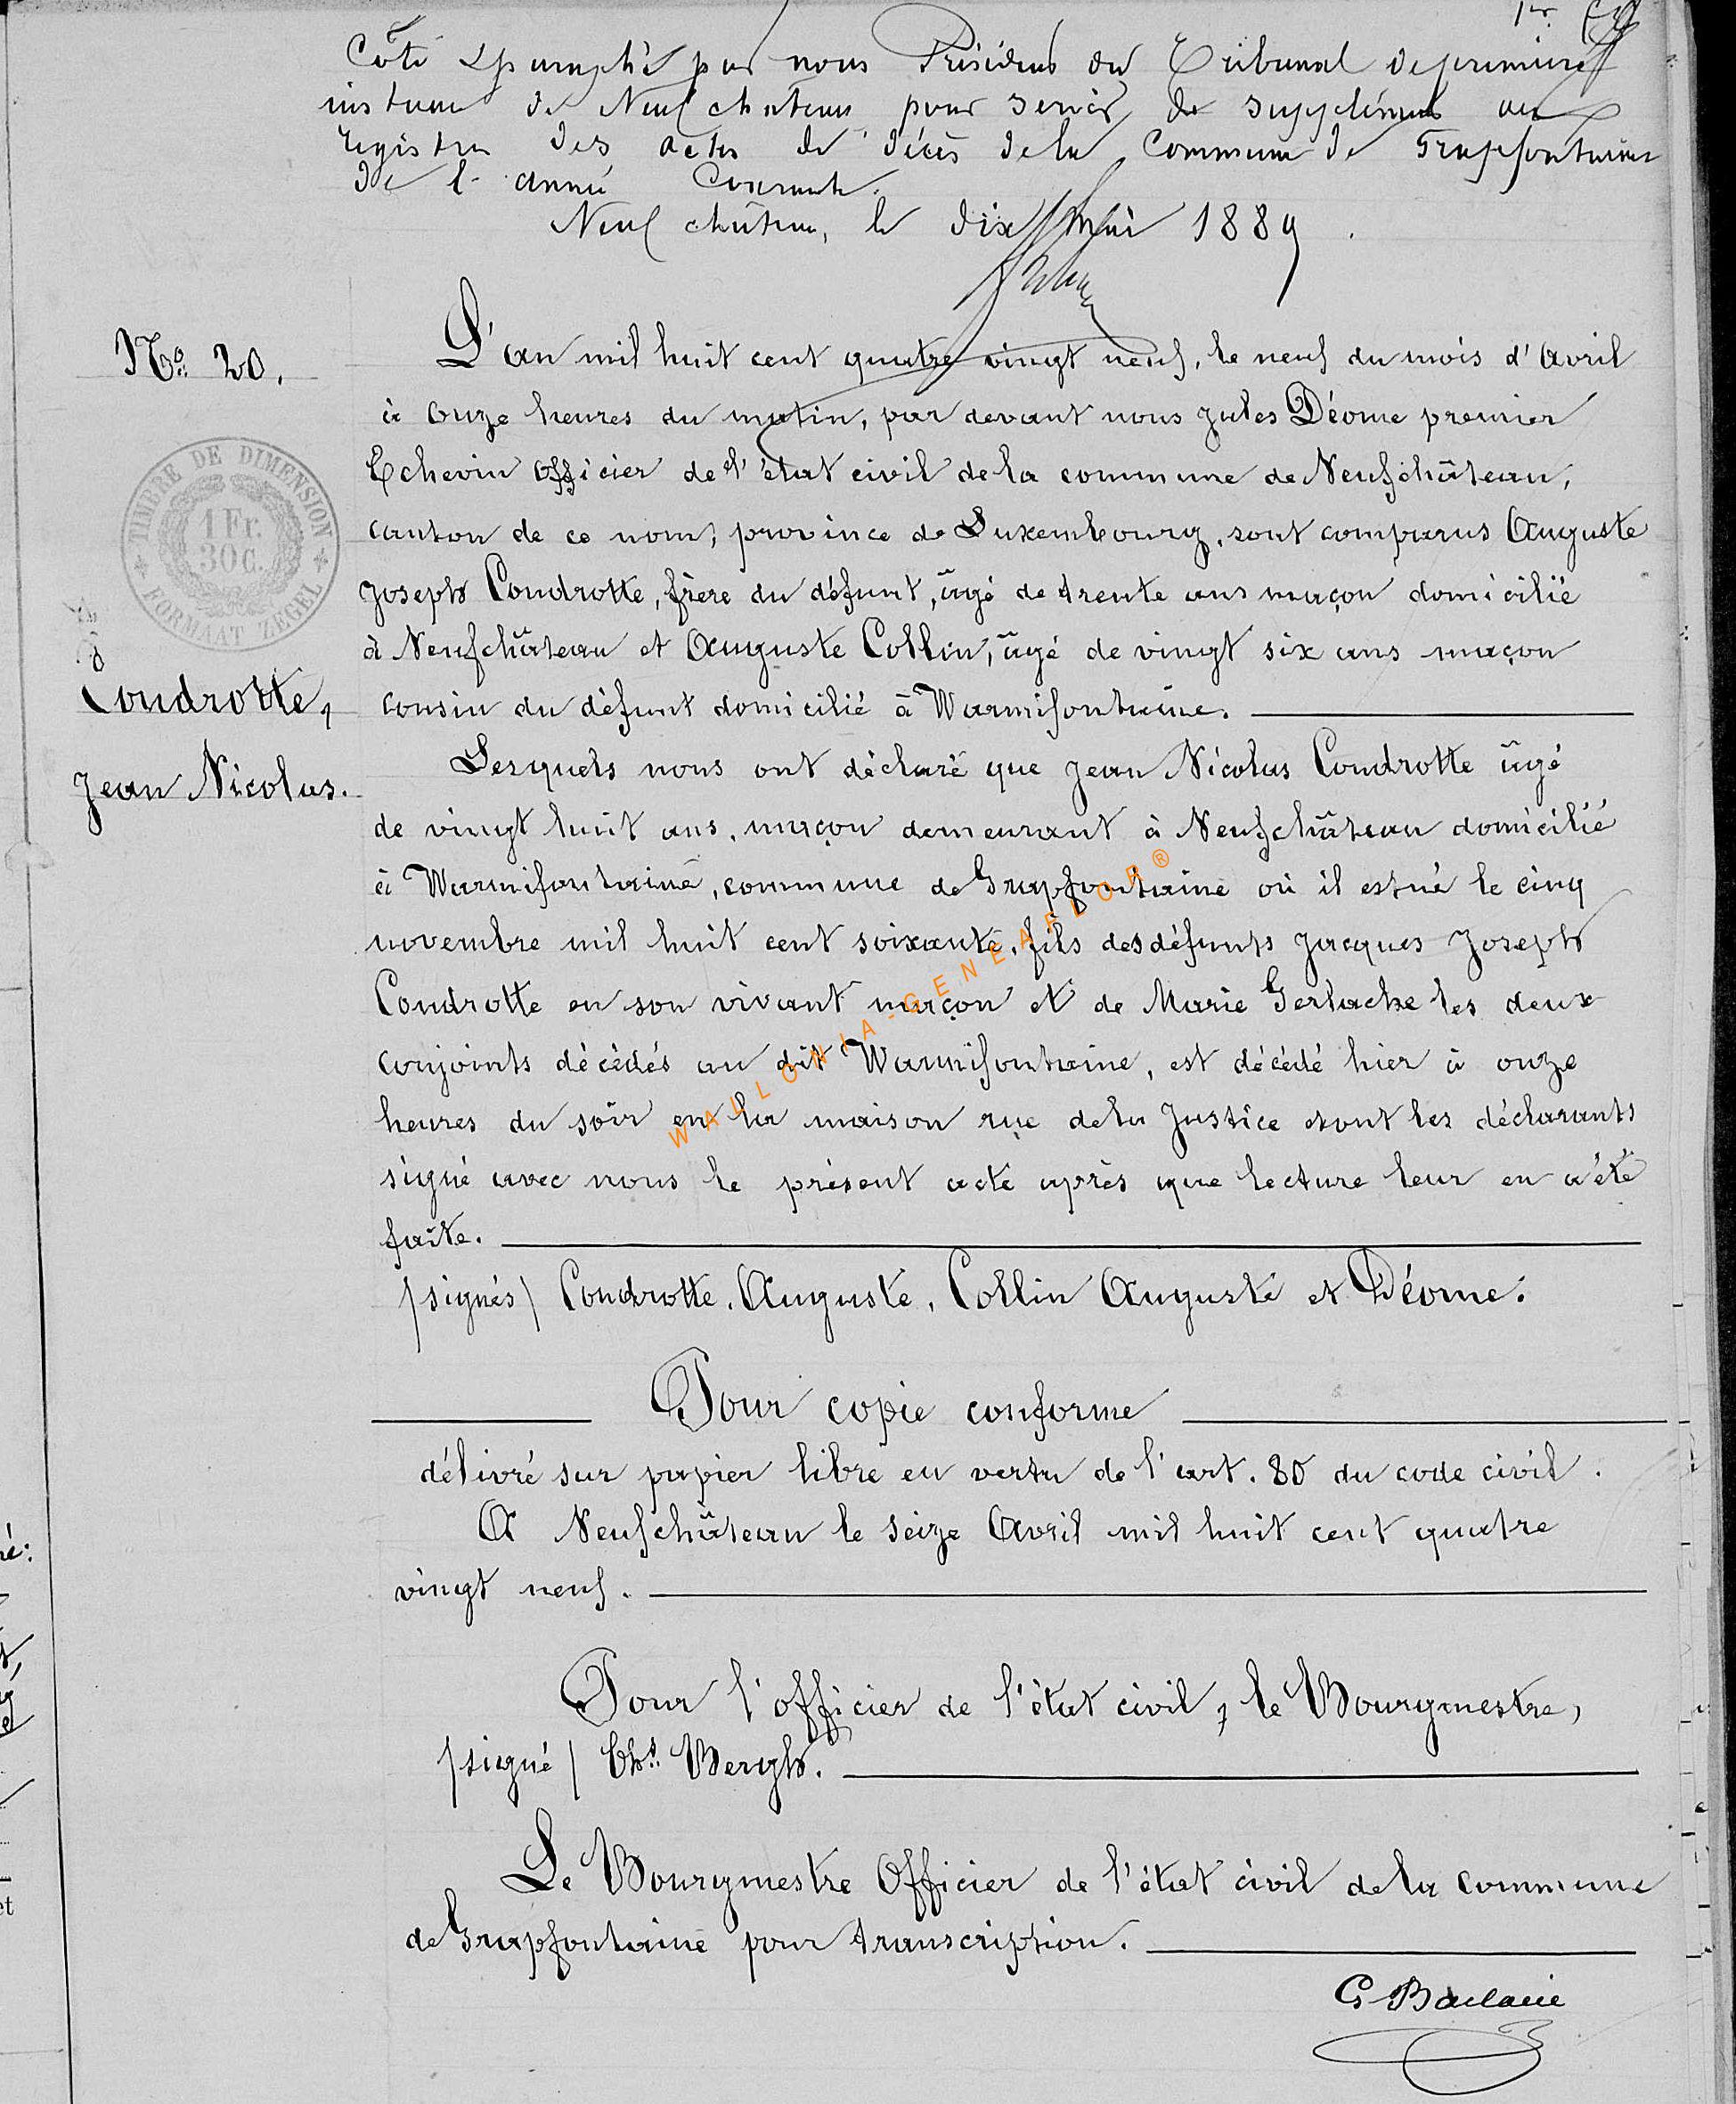 1er
Coté & paraphé par nous Président du Tribunal de première
instance de Neufchateau pour servir de supplément au
registre des actes de décès de la Commune de Grapfontaine
de l'année Courante.
Neufchâteau, le dix Mai 1889.
No. 20.
L'an mil huit cent quatre vingt neuf, le neuf du mois d'Avril
à onze heures du matin, par devant nous Jules Déome premier
Echevin Officier de l'état civil de la commune de Neufchâteau,
canton de ce nom, province de Luxembourg, sont comparus Auguste
Joseph Condrotte, frère du défunt, âgé de trente ans maçon domicilié
à Neufchâteau et Auguste Collin, âgé de vingt six ans maçon
cousin du défunt domicilié à Warmifontaine.
TIMBRE DE DIMENSION
1 Fr.
30 c.
FORMAAT ZEGEL
Condrotte,
Jean Nicolas.
Lesquels nous ont déclaré que Jean Nicolas Condrotte âgé
de vingt huit ans, maçon demeurant à Neufchâteau domicilié
à Warmifontaine, commune de Grapfontaine où il est né le cinq
novembre mil huit cent soixante, fils des défunts Jacques Joseph
Condrotte en son vivant maçon et de Marie Gerlache les deux
conjoints décédés au dit Warmifontaine, est décédé hier à onze
heures du soir en la maison rue de la Justice et ont les déclarants
signé avec nous le présent acte après que lecture leur en a été
faite.
/signés/ Condrotte, Auguste, Collin Auguste et Déome.
Pour copie conforme
délivré sur papier libre en vertu de l'art. 80 du code civil.
A Neufchâteau le seize Avril mil huit cent quatre
vingt neuf.
Pour l'officier de l'état civil, le Bourgmestre,
/signé/ Chs. Bergh.
Le Bourgmestre Officier de l'état civil de la commune
de Grapfontaine pour transcription.
WALLONIA-GENEAFLOR®